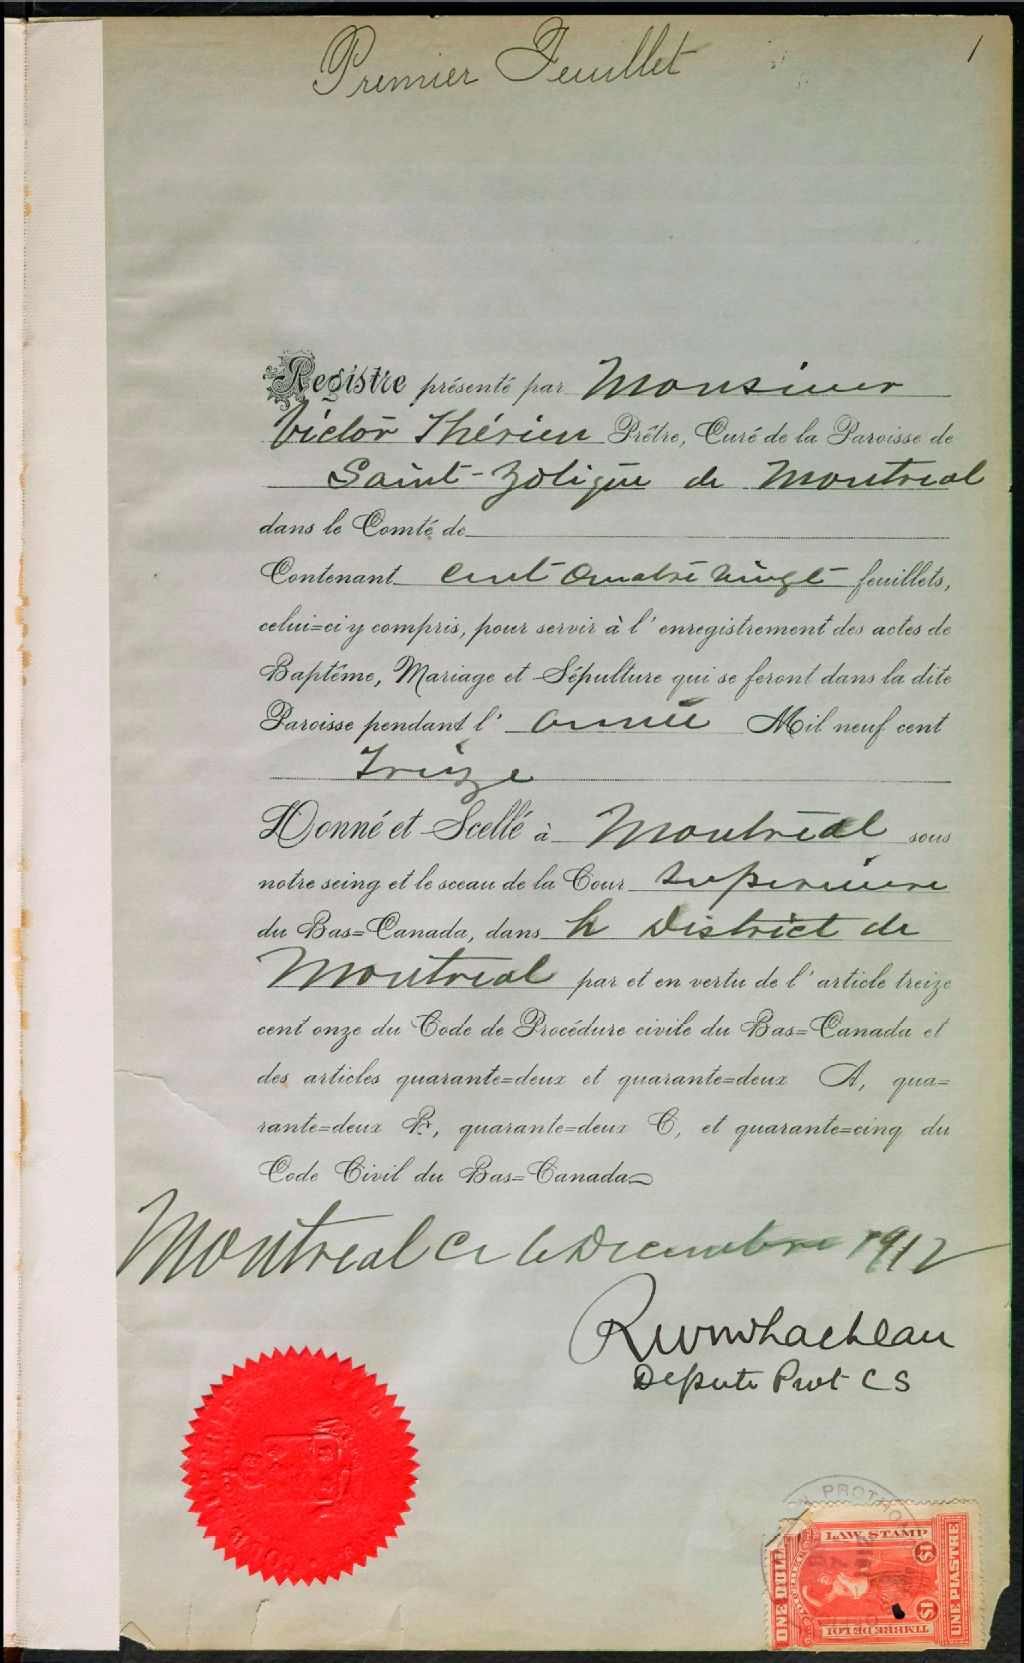 Premier Feuillet
1
Registre présenté par Monsieur
Victor Thérien Prêtre, Curé de la Paroisse de
Saint-Zotique de Montreal
dans le Comté de
Contenant cent quatre vingt feuillets,
celui=ci y compris, pour servir à l'enregistrement des actes de
Baptême, Mariage et Sépulture qui se feront dans la dite
Paroisse pendant l'année Mil neuf cent
Treize
Donné et Scellé à Montréal sous
notre seing et le sceau de la Cour Superieure
du Bas=Canada, dans le District de
Montreal par et en vertu de l'article treize
cent onze du Code de Procédure civile du Bas=Canada et
des articles quarante=deux et quarante=deux A, qua=
rante=deux B, quarante=deux C, et quarante=cinq du
Code Civil du Bas=Canada
Montreal ce 6 Decembre 1912
Depute Prot C S
LAW STAMP
$1
$1
TIMBRE DE LOI
UNE PIASTRE